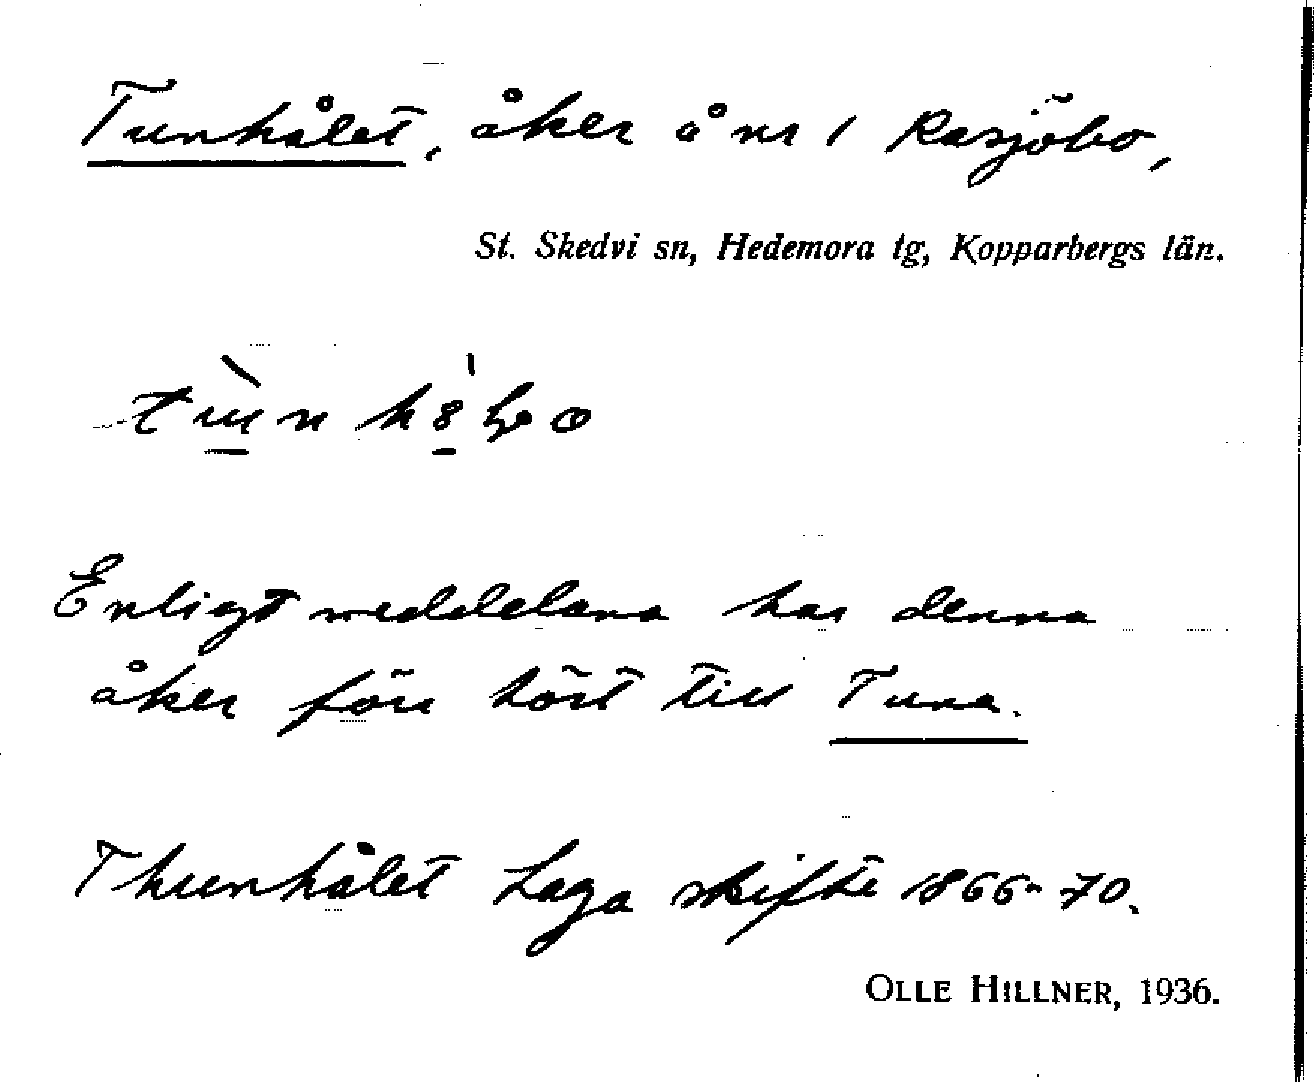 Tunhålet, åker å nr 1 Rasjöbo,
St. Skedvi sn, Hedemora tg, Kopparbergs län.
Enligt meddelarna har denna
åker förr hört till Tuna.
Thunhålet Laga skifte 1866-70.
OLLE HILLNER, 1936.